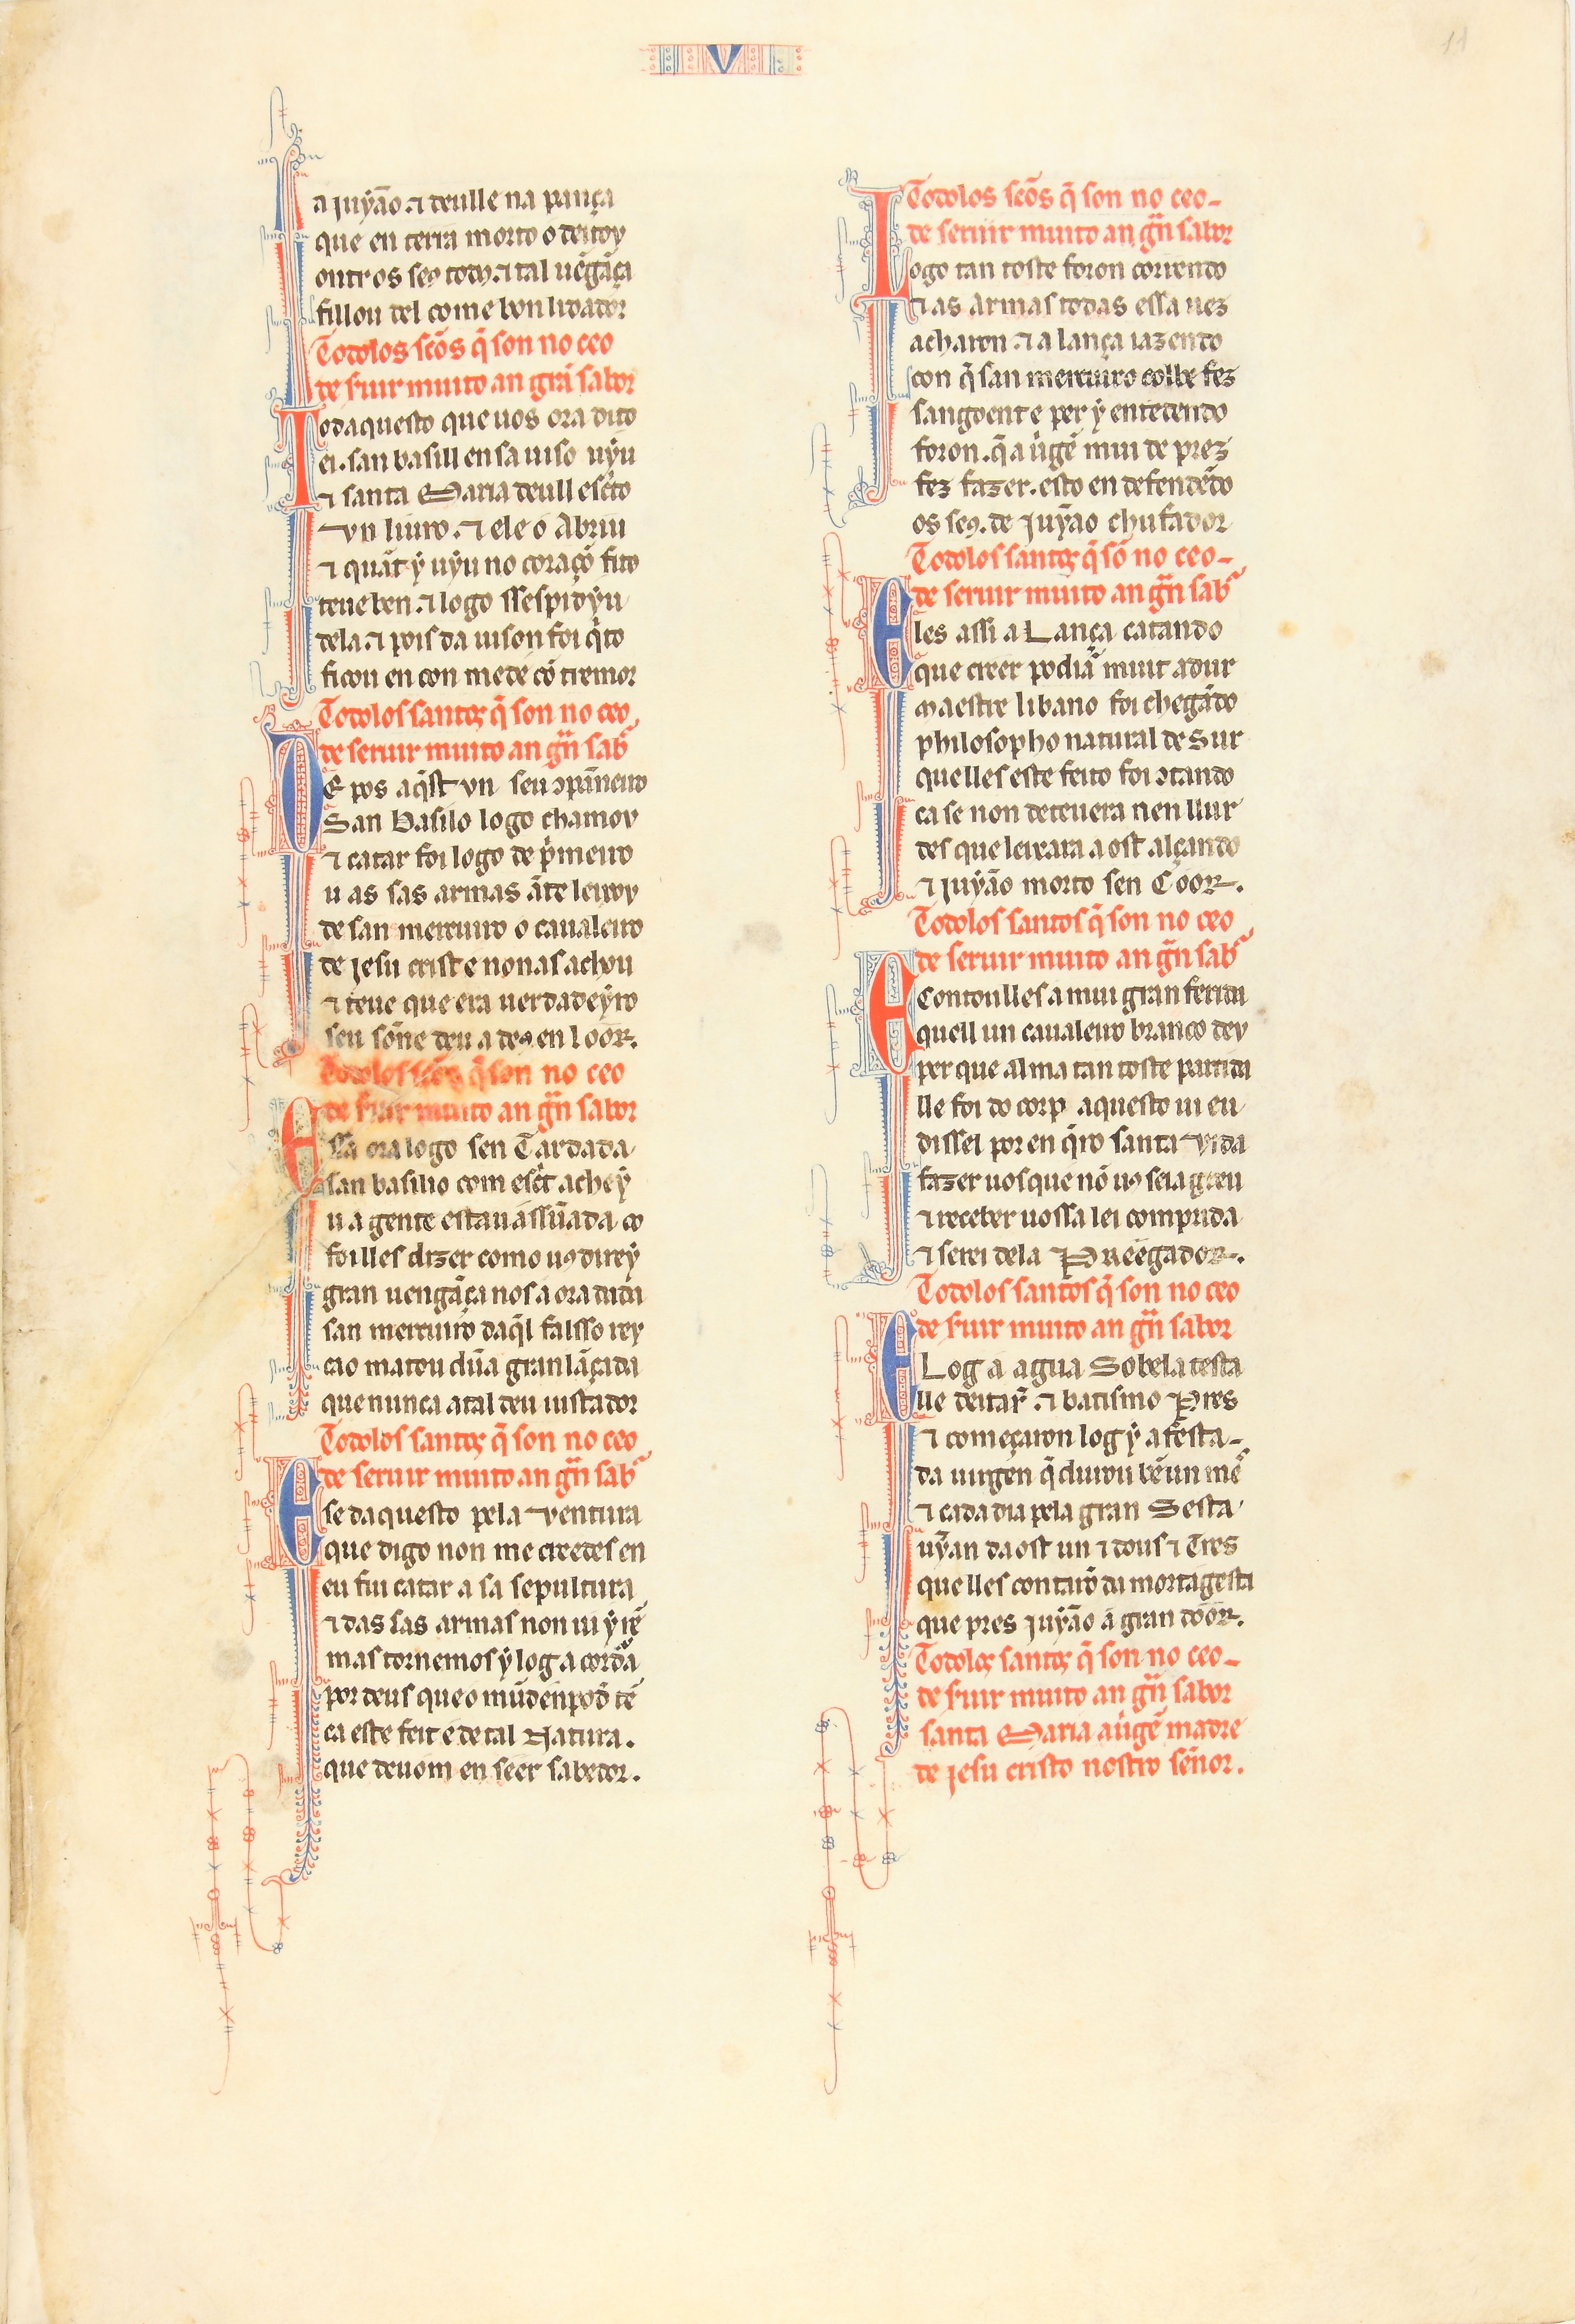 V
11
a juyão. ⁊ deulle na pança
que en terra morto o deitoу
outros seꝯ todꝯ. ⁊ tal uẽgãça
fillou del come bon lidador
Todolos scõs q̃ son no ceo
de s̃uir muito an grã sabor
Todaquesto que uos ora dito
ei. san basill en sa uiso uỹu
⁊ santa Maria deull esc̃to
vn liuro. ⁊ ele o Abriu
⁊ quãt ỹ uỹu no coraçõ fito
teue ben. ⁊ logo ssespidỹu
dela. ⁊ pois da uison foi q̃to
ficou en con medẽ cõ tremor
Todolos santos q̃ son no ceo
de seruir muito an grã sab̃
De pos aq̃st vn seu ꝯpãneiro
San Basilo logo chamou
⁊ catar foi logo de p̃meiro
u as sas armas ãte leixou
de san mercuiro o caualeiro
de jesu crist e non as achou
⁊ teue que era uerdadeỹro
seu sõne deu a deꝯ en loor.
Todolos scõs q̃ son no ceo
de s̃uir muito an grã sabor
Essa ora logo sen Tardada
san basilio com esc̃t acheỹ
u a gente estaua assũada. co
foilles dizer como uꝯ direỹ
gran uengãça nos a ora dada
san mercuiro daq̃l falsso rey
cao matou dũa gran lãçada
que nunca atal deu iustador
Todolos santos q̃ son no ceo
de seruir muito an grã sab̃
E se daquesto pela ventura
que digo non me creedes en
eu fui catar a sa sepultura
⁊ das sas armas non ui ỹ rẽ
mas tornemos ỹ log a cordã
por deus que o mũd en pod̃ tẽ
ca este feit e de tal Natura.
que deuom en seer sabedor.
Todolos scõs q̃ son no ceo
de seruir muito an grñ sabor
Logo tan toste foron correndo
⁊ as Armas todas essa uez
acharon. ⁊ a lança iazendo
con q̃ san mercuiro colbe fez
sangoent e per ỹ entedendo
foron. q̃ a uirgẽ mui de prez
fez fazer. esto en defendẽdo
os seꝯ. de juỹao chufador
Todolos santos q̃ sõ no ceo
de seruir muito an grñ sab̃
Eles assi a Lança catando
que creer podiã muit adur
maestre libano foi chegãdo
philosopho natural de Sur
quelles este feito foi ꝯtando
ca se non deteuera nen llur
des que leixara a ost alçando
⁊ juỹão morto sen Coor.
Todolos santos q̃ son no ceo
de seruir muito an grñ sab̃
E contoulles a mui gran ferida
quell un caualeiro branco dey
per que alma tan toste partida
lle foi do corp aquesto ui eu
dissel por en q̃ro santa vida
fazer uosque nõ uꝯ seia greu
⁊ receber uossa lei comprida
⁊ serei dela Preegador.
Todolos santos q̃ son no ceo
de s̃uir muito an grñ sabor
E Log a agua Sobela testa
lle deitar̃. ⁊ batismo Pres
⁊ começaron log ỹ a festa
da uirgen q̃ durou bẽ un mẽ
⁊ cada dia pela gran Sesta
uỹan da ost un ⁊ dous ⁊ Tres
quelles contarõ da mort agesta
que pres juỹão a gran door.
Todolos santos q̃ son no ceo
de s̃uir muito an grñ sabor
santa Maria a uirgẽ madre
de jesu cristo nostro señor.